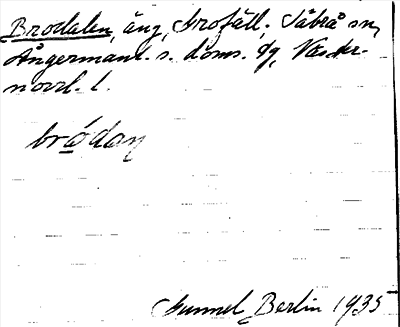 Brodalen, äng, Arofäll. Säbrå sn,
Ångermanl. s. doms. dg, Väster-
norrl. l.
bródan
Gunnel Berlin 1935